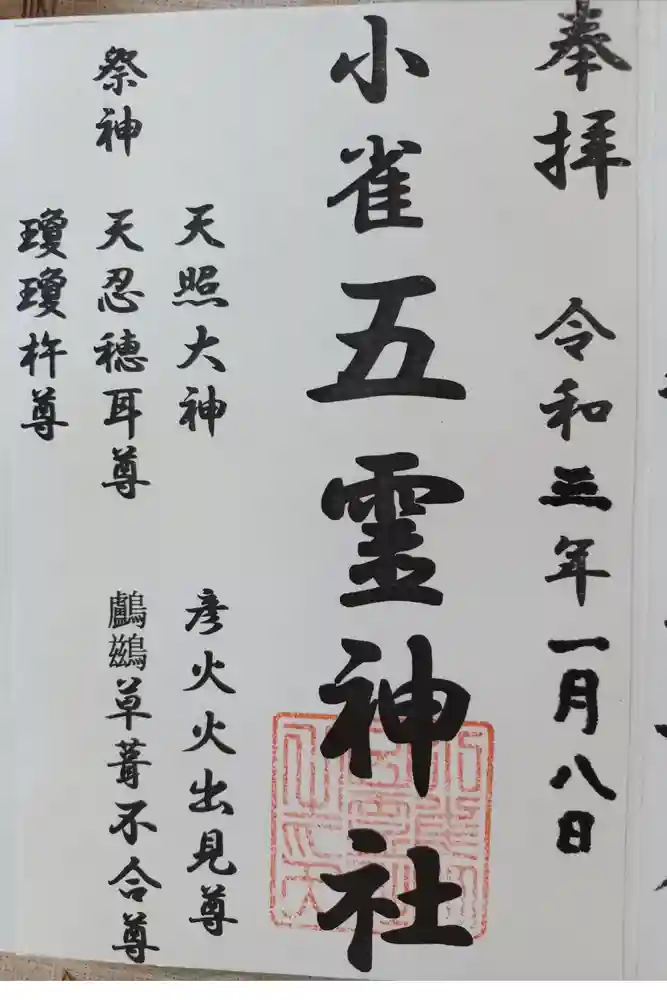 奉拝 令和三年一月八日
小雀五霊神社
祭神
天照大神
天忍穂耳尊
瓊瓊杵尊
彦火火出見尊
鸕鷀草葺不合尊